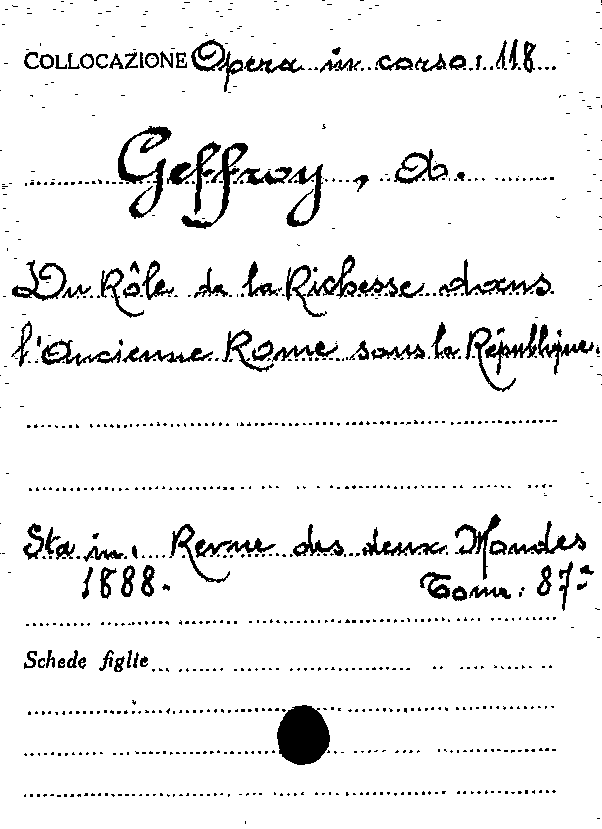 COLLOCAZIONE Opera in corso: 118
Geffroy, A.
Du Rôle de la Richesse dans
l'Ancienne Rome sous la République.
Sta in: Revue des deux Mondes
1888. Tome: 87º
Schede figlie